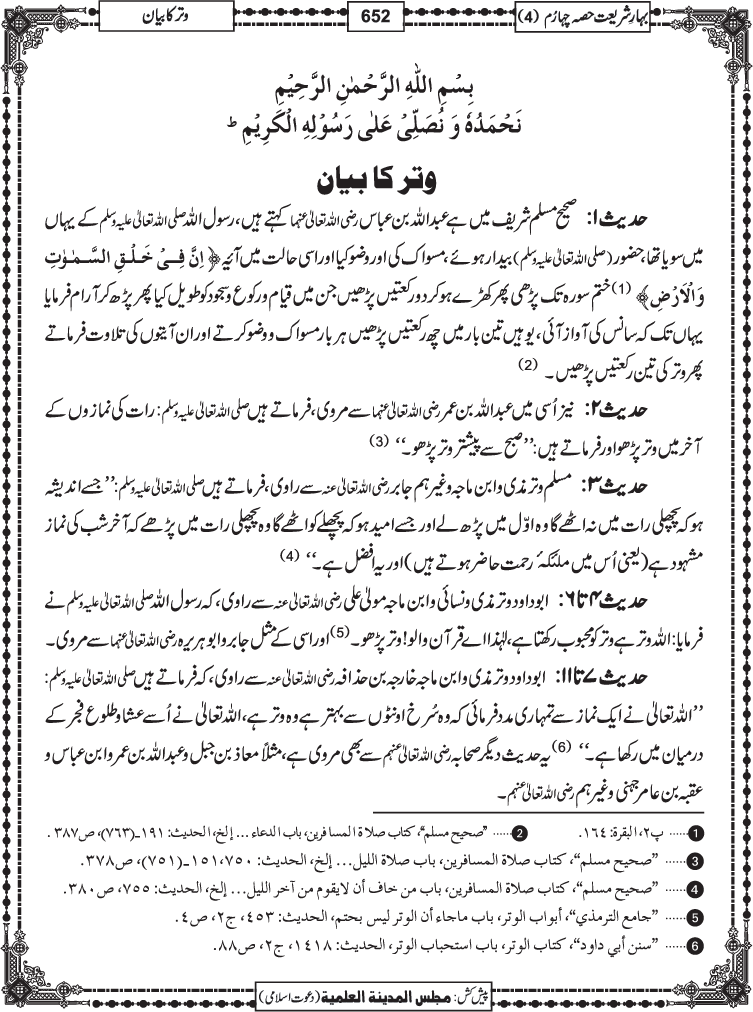 بہارِشریعت حصہ چہارم (4)
652
وتر کا بیان
بِسْمِ اللّٰهِ الرَّحْمٰنِ الرَّحِیْمِ
نَحْمَدُهٗ وَ نُصَلِّیْ عَلٰی رَسُوْلِهِ الْکَرِیْمِ ط
وتر کا بیان
حدیث ۱: صحیح مسلم شریف میں ہے عبداللہ بن عباس رضی اللہ تعالیٰ عنہما کہتے ہیں، رسول اللہ صلی اللہ تعالیٰ علیہ وسلم کے یہاں
میں سویا تھا، حضور (صلی اللہ تعالیٰ علیہ وسلم) بیدار ہوئے، مسواک کی اور وضو کیا اور اسی حالت میں آیہ ﴿ اِنَّ فِیْ خَلْقِ السَّمٰوٰتِ
وَالْاَرْضِ ﴾ (1) ختم سورہ تک پڑھی پھر کھڑے ہو کر دو رکعتیں پڑھیں جن میں قیام و رکوع و سجود کو طویل کیا پھر پڑھ کر آرام فرمایا
یہاں تک کہ سانس کی آواز آئی، یوہیں تین بار میں چھ رکعتیں پڑھیں ہر بار مسواک و وضو کرتے اور ان آیتوں کی تلاوت فرماتے
پھر وتر کی تین رکعتیں پڑھیں۔ (2)
حدیث ۲: نیز اُسی میں عبداللہ بن عمر رضی اللہ تعالیٰ عنہما سے مروی، فرماتے ہیں صلی اللہ تعالیٰ علیہ وسلم: رات کی نمازوں کے
آخر میں وتر پڑھو اور فرماتے ہیں: ’’صبح سے پیشتر وتر پڑھو۔‘‘ (3)
حدیث ۳: مسلم و ترمذی و ابن ماجہ وغیرہم جابر رضی اللہ تعالیٰ عنہ سے راوی، فرماتے ہیں صلی اللہ تعالیٰ علیہ وسلم: ’’جسے اندیشہ
ہو کہ پچھلی رات میں نہ اٹھے گا وہ اوّل میں پڑھ لے اور جسے امید ہو کہ پچھلے کو اٹھے گا وہ پچھلی رات میں پڑھے کہ آخر شب کی نماز
مشہود ہے (یعنی اُس میں ملئکۂ رحمت حاضر ہوتے ہیں) اور یہ افضل ہے۔‘‘ (4)
حدیث ۴ تا ۶: ابو داود و ترمذی و نسائی و ابن ماجہ مولیٰ علی رضی اللہ تعالیٰ عنہ سے راوی، کہ رسول اللہ صلی اللہ تعالیٰ علیہ وسلم نے
فرمایا: اللہ وتر ہے وتر کو محبوب رکھتا ہے، لہٰذا اے قرآن والو! وتر پڑھو۔ (5) اور اسی کے مثل جابر و ابوہریرہ رضی اللہ تعالیٰ عنہما سے مروی۔
حدیث ۷ تا ۱۱: ابو داود و ترمذی و ابن ماجہ خارجہ بن حذافہ رضی اللہ تعالیٰ عنہ سے راوی، کہ فرماتے ہیں صلی اللہ تعالیٰ علیہ وسلم:
’’اللہ تعالیٰ نے ایک نماز سے تمہاری مدد فرمائی کہ وہ سُرخ اونٹوں سے بہتر ہے وہ وتر ہے، اللہ تعالیٰ نے اُسے عشا و طلوع فجر کے
درمیان میں رکھا ہے۔‘‘ (6) یہ حدیث دیگر صحابہ رضی اللہ تعالیٰ عنہم سے بھی مروی ہے، مثلاً معاذ بن جبل و عبداللہ بن عمرو و ابن عباس و
عقبہ بن عامر جہنی وغیرہم رضی اللہ تعالیٰ عنہم۔
1 ...... پ۲، البقرة: ١٦٤. 2 ...... ”صحيح مسلم“، كتاب صلاة المسافرين، باب الدعاء ... إلخ، الحديث: ١٩١ـ(٧٦٣)، ص٣٨٧.
3 ...... ”صحيح مسلم“، كتاب صلاة المسافرين، باب صلاة الليل... إلخ، الحديث: ٧٥٠،١٥١ـ(٧٥١)، ص٣٧٨.
4 ...... ”صحيح مسلم“، كتاب صلاة المسافرين، باب من خاف أن لايقوم من آخر الليل... إلخ، الحديث: ٧٥٥، ص٣٨٠.
5 ...... ”جامع الترمذي“، أبواب الوتر، باب ماجاء أن الوتر ليس بحتم، الحديث: ٤٥٣، ج٢، ص٤.
6 ...... ”سنن أبي داود“، كتاب الوتر، باب استحباب الوتر، الحديث: ١٤١٨، ج٢، ص٨٨.
پیش کش: مجلس المدینۃ العلمیۃ (دعوتِ اسلامی)